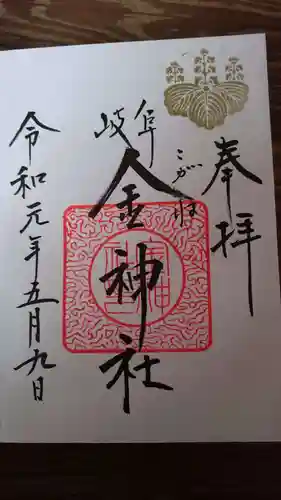 奉拝
こがね
岐阜
金神社
令和元年五月九日